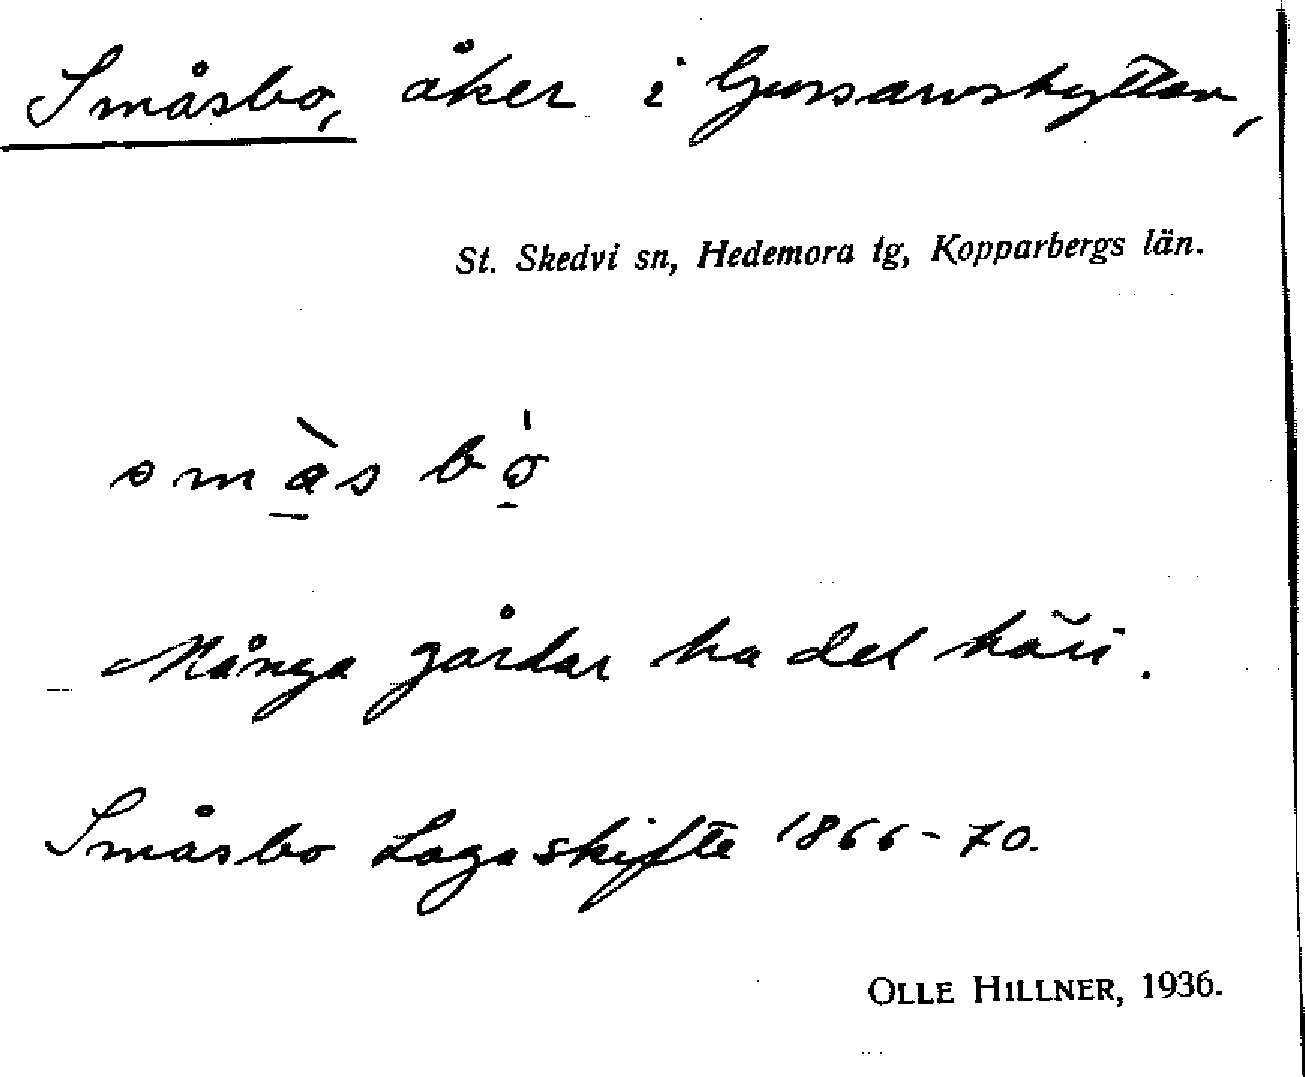 Småsbo, åker i Gussarvshyttan,
St. Skedvi sn, Hedemora tg, Kopparbergs län.
smàs bò̠
Många gårdar ha del häri.
Småsbo Laga skifte 1866-70.
OLLE HILLNER, 1936.